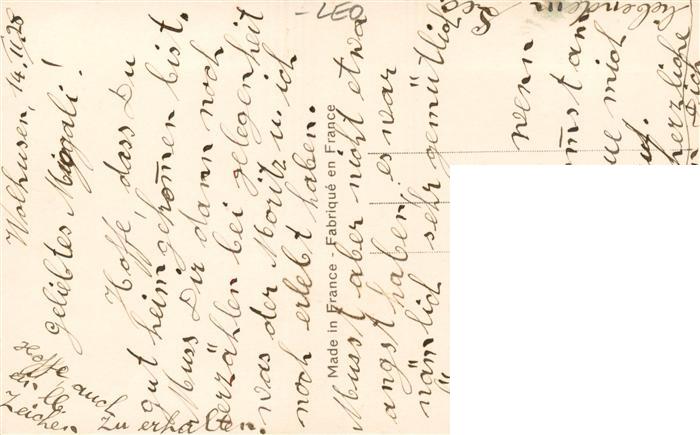 Wolhusen, 14.IV.28
geliebtes Miggali!
Hoffe, dass Du
gut heim gekom̄en bist.
Muss Dir dann noch
erzählen bei gelegenheit
was der Moritz u. ich
noch erlebt haben.
Musst aber nicht etwa
angst haben, es war
nämlich sehr gemütlich
wenn
mich
herzliche
Hoffe auch
Zeichen zu erhalten.
Made in France - Fabriqué en France
-LEO